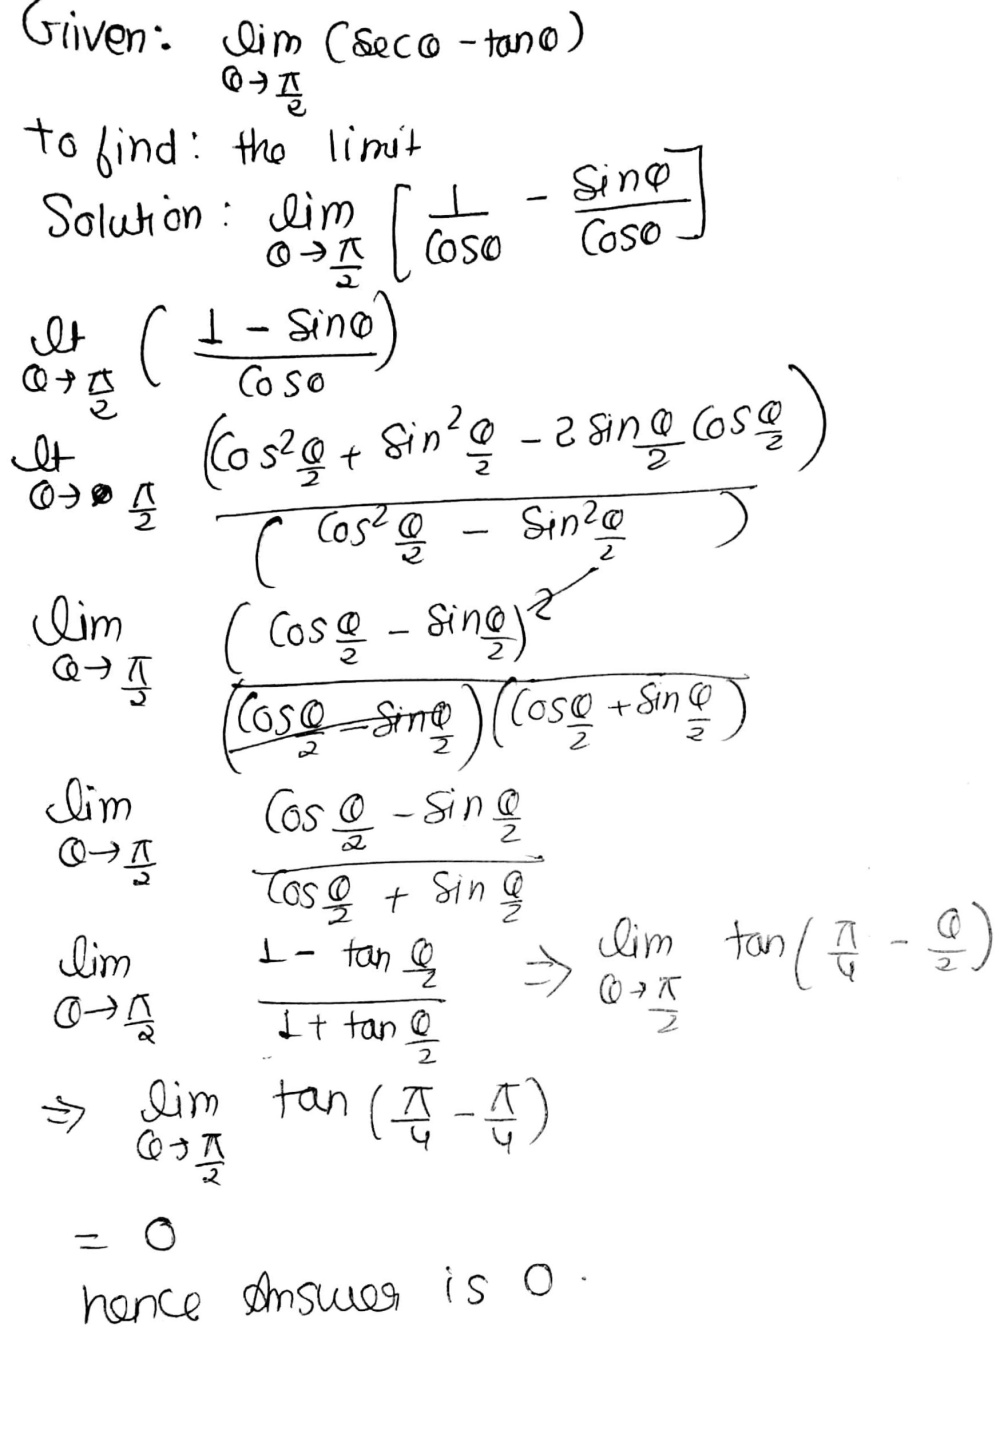 Given: lim (secθ - tanθ)
θ→π/2
to find: the limit
Solution: lim θ→π/2 [1/cosθ - sinθ/cosθ]
lt θ→π/2 (1 - sinθ / cosθ)
lt θ→π/2 (cos²θ/2 + sin²θ/2 - 2 sinθ/2 cosθ/2)
(cos²θ/2 - sin²θ/2)
lim θ→π/2 (cosθ/2 - sinθ/2)²
(cosθ/2 - sinθ/2)(cosθ/2 + sinθ/2)
lim θ→π/2 cosθ/2 - sinθ/2
cosθ/2 + sinθ/2
lim θ→π/2 1 - tanθ/2 / 1 + tanθ/2 ⇒ lim θ→π/2 tan(π/4 - θ/2)
⇒ lim θ→π/2 tan(π/4 - π/4)
= 0
hence Answer is 0.